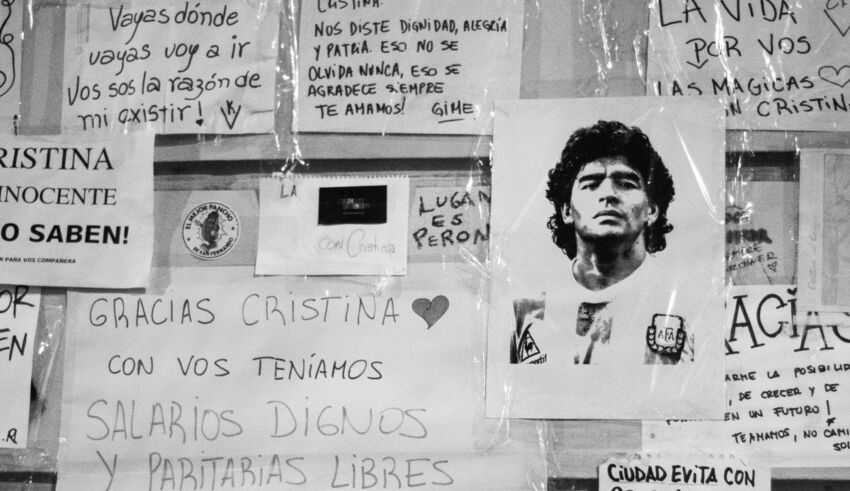 Vayas dónde
vayas voy a ir
Vos sos la razón de
mi existir! K
CRISTINA:
NOS DISTE DIGNIDAD, ALEGRÍA
Y PATRIA. ESO NO SE
OLVIDA NUNCA, ESO SE
AGRADECE SIEMPRE
TE AMAMOS! GIME
LA VIDA
POR VOS
LAS MAGICAS
CRISTIN
RISTINA
INOCENTE
O SABEN!
PARA VOS COMPAÑERA
EL MEJOR PANCHO
DE SAN FERNANDO
LA
CON Cristina
LUGAN
ES
PERON
GRACIAS CRISTINA
CON VOS TENÍAMOS
SALARIOS DIGNOS
Y PARITARIAS LIBRES
sportif
AFA
OR
EN
.R
RACIAS
ARME LA POSIBILID
, DE CRECER Y DE
EN UN FUTURO!
TEAMAMOS, NO CAMI
SOL
CIUDAD EVITA CON